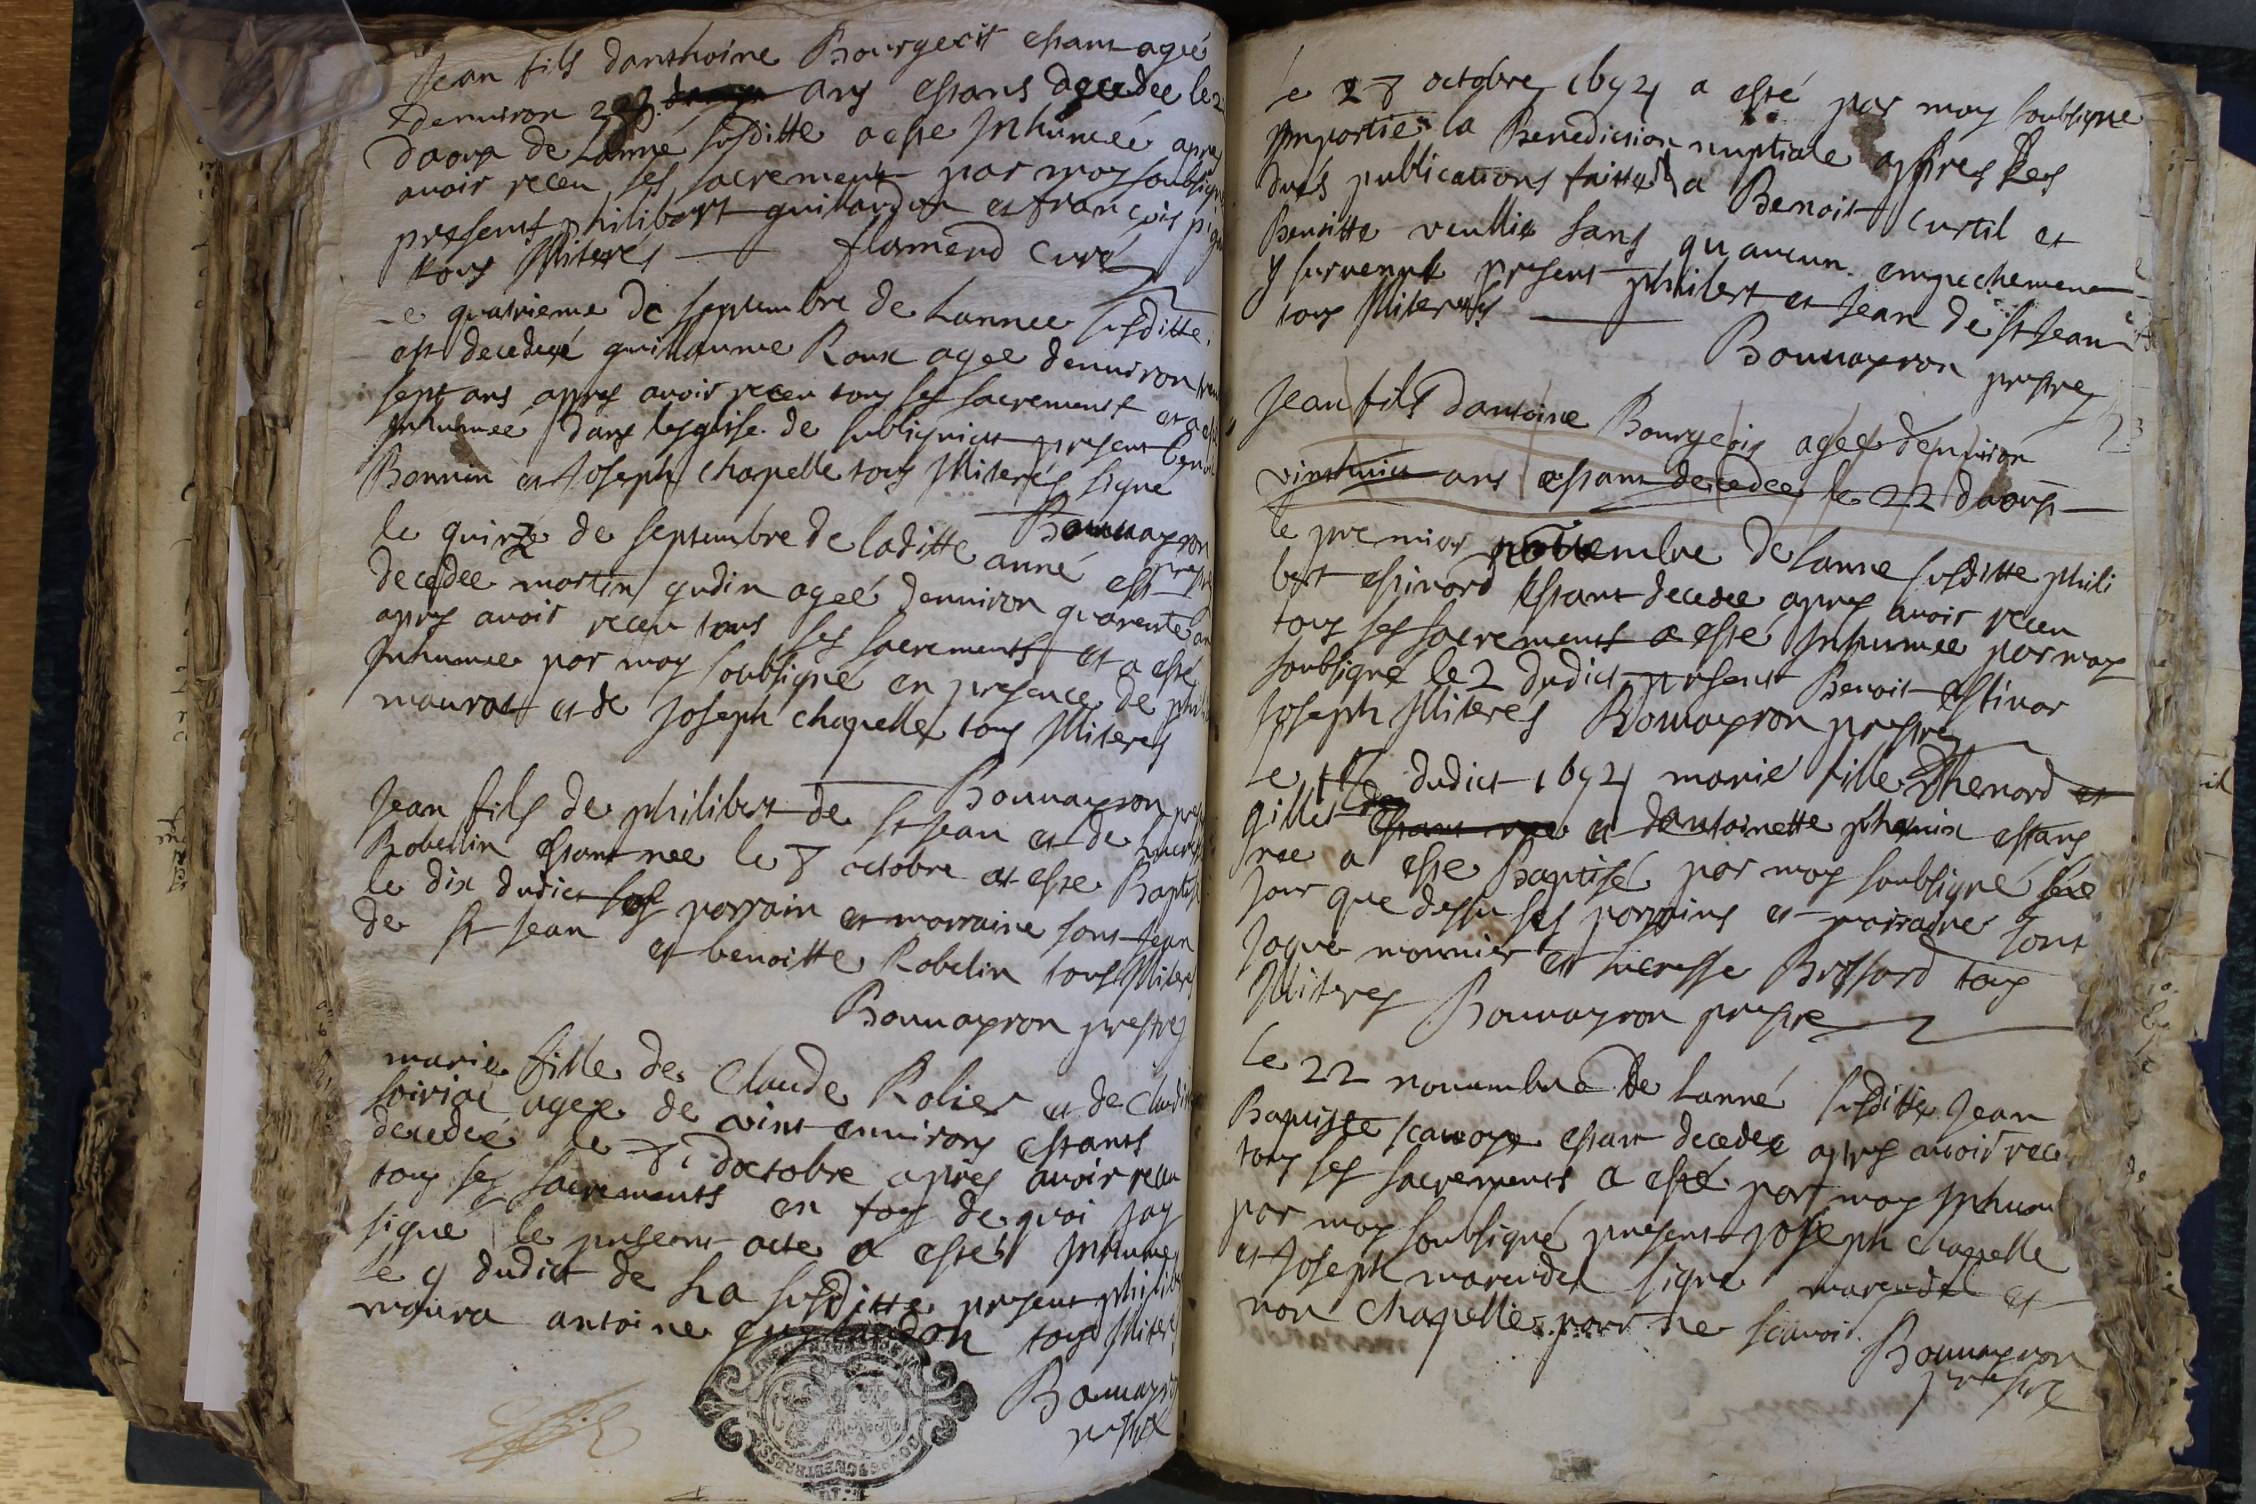 Jean fils danthoine Bourgeois estant agée
denuiron 28 ans estans decedee le 2
daoux de Lanné susditte a este Inhumée apres
auoir receu ses sacrement par moy soubsigné
present philibert guillardon et françois
tous Illiterés flamend Curé
e quatrieme de septembre de Lannee susditte
est decedeé guillaume Roux agee denuiron
sept ans apres auoir receu tous ses sacrement et a esté
Inhumée dans lesglise de subligniet present
Bonnin et Joseph Chapelle tous Illiterés signé
Bonnayron
prestre
le quinze de septembre de laditte anné est
decedee martin gudin ageé denuiron quarente ans
apres auoir receu tous ses sacrements et a esté
Inhumee par moy soubsigné en presence de phi
maurat et de Joseph Chapelle tous Illiteres
Bonnayron
Jean fils de philibert de st Jean et de Lucresse
Robelin estant nee le 8 octobre at este Baptisé
le dix dudict ses parrain et marraine sont Jean
de st Jean et benoitte Robelin tous Illiteres
Bonnayron prestre
marie fille de Claude Rolier et de Claudi
agee de vint enuirons estants
decedeé le 8 doctobre apres auoir receu
tous ses sacrements en foy de quoi Jay
signe le present acte a esté Inhumé
le 9 dudict de La susditte present phili
maura antoine tous Illiteres
Bonnayron
prestre
e 28 octobre 1694 a esté par moy soubsigne
Impartie la Benediction nuptiale appres les
dues publications faittes a Benoit Curtil et
Benoitte veullie sans qu aucun empechement
y suruenut present philibert et Jean de st Jean
tous Illiterés
Bonnayron prestre
Jean fils dantoine Bourgeois agee denuiron
vinthuict ans estant decedee le 22 daoust
le premier nouembre de Lanne susditte phili
bert estinard estant decedee apres auoir receu
tous ses sacrements a esté Inhumee par moy
soubsigné le 2 dudict present Benoit estinar
Joseph Illiterés Bonnayron prestre
Le dudict 1694 marie fille Thenard
gillet et dantoinette phenix estans
nee a este Baptisé par moy soubsigné
Jour que dessu ses parrains et marraine sont
Jaque monnier et lucresse Brossard tous
Illiteres Bonnayron prestre
Le 22 nouembre de Lanné susditte Jean
Baptiste scauoye estant decedee apres auoir rece
tous ses sacrements a esté par moy Inhumé
par moy soubsigné present Joseph Chapelle
et Joseph marendel signe marendel et
non Chapelle pour ne scauoir
Bonnayron
prestre